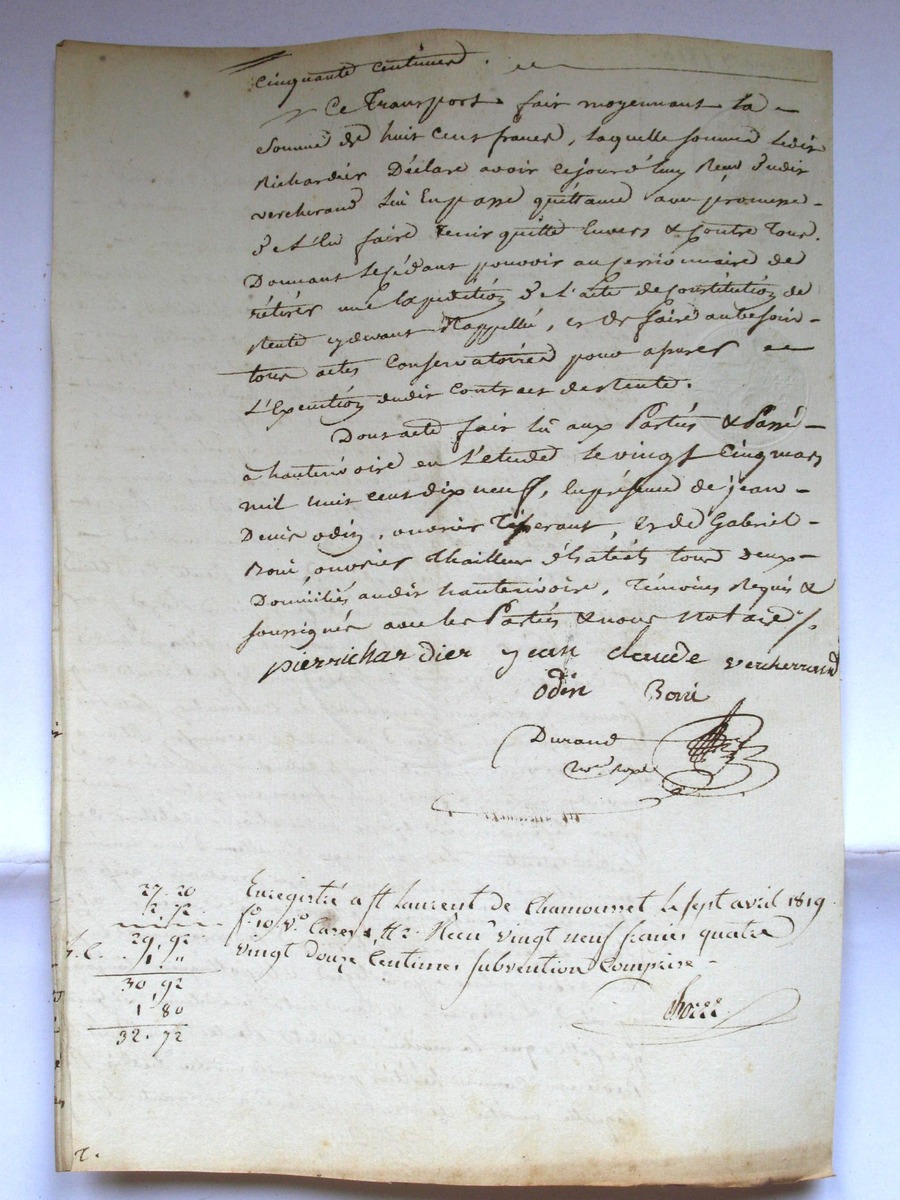 cinquante centimes.
Ce Transport fait moyennant la
Somme de huit cent francs, laquelle somme ledit
Richardier Déclare avoir cejourd'huy Reçu dudit
vercherand lui En passe quittance avec promesse
de l'En faire Tenir quitte Envers & contre Tous.
Donnant le cédant pouvoir au cessionnaire de
rétirer une Expédition de l'acte de constitution de
Rente cydevant Rappellé, et de faire au besoin
tous actes Conservatoires pour assurer
L'Execution dudit contract de rente.
Dont acte fait lû aux Parties & Passé
à hauterivoire en L'etude le vingt cinq mars
mil huit cent dix neuf, En présence de jean
Denis odin, ouvrier Tisserant, et de Gabriel
Boni, ouvrier thailleur d'habits tous deux
Domiciliés audit hauterivoire, Témoins Requis &
soussignés avec les Parties & nous Notaire
pierrichardier jean claude vercherrand
odin Boni
Durand
Nore. Royal
27. 20
2. 72
29. 92
1. "
30 92
1 80
32. 72
Enregistré a St Laurent de Chamousset le sept avril 1819
fo. 10 Vo. Cases Reçu vingt neuf francs quatre
vingt douze Centimes subvention Comprise